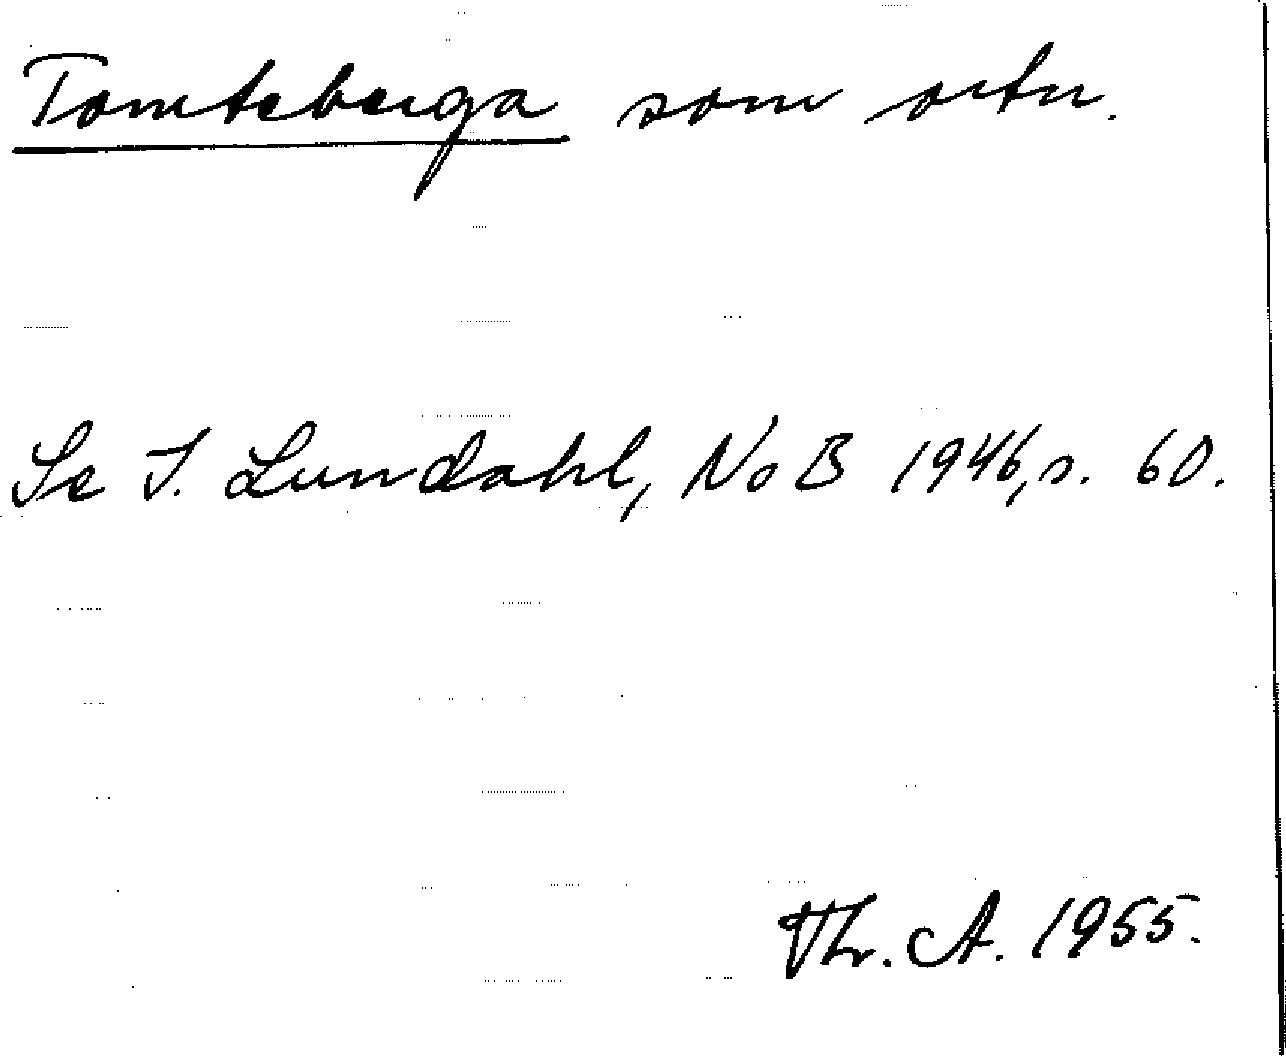 Tomteberga som ortn.
Se I. Lundahl, NoB 1946, s. 60.
Thr. A. 1955.